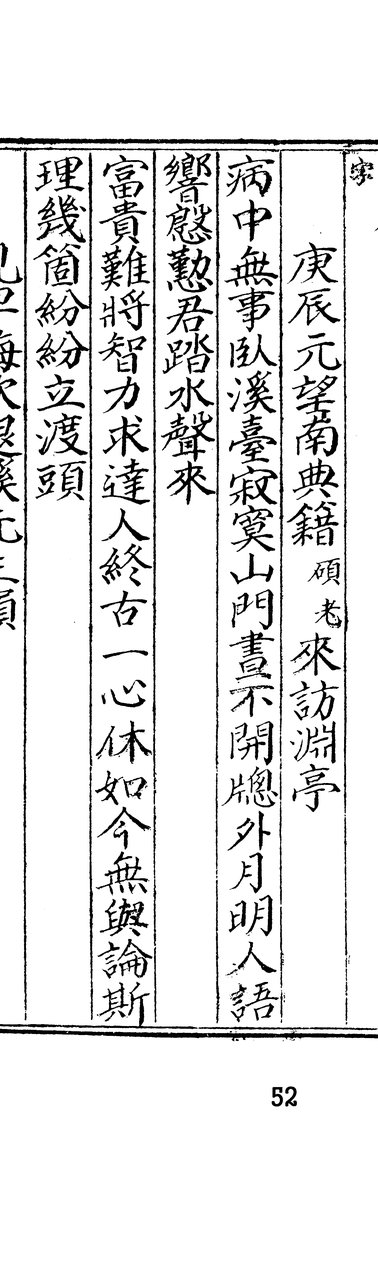 字
庚辰元望南典籍碩老來訪淵亭
病中無事臥溪臺寂寞山門晝不開牕外月明人語
響慇懃君踏水聲來
富貴難將智力求達人終古一心休如今無與論斯
理幾箇紛紛立渡頭
52